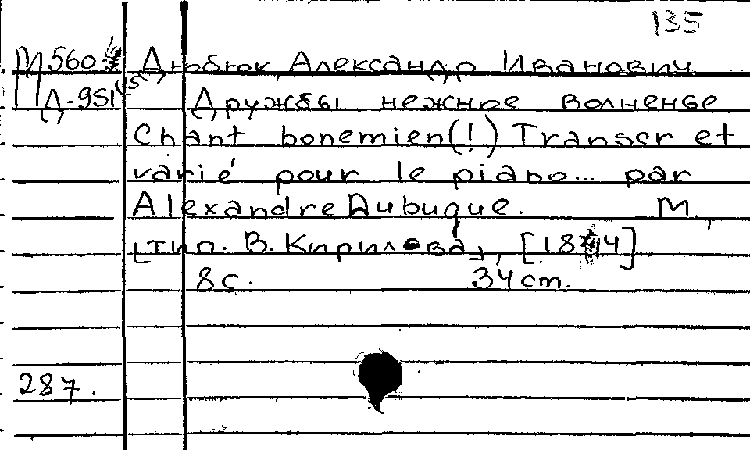 135
М560 Дюбюк, Александр Иванович
Д-951 Дружбы нежное волненье
Chant bonemien(!) Transcr et
varié pour le piano... par
Alexandre Dubuque. М.,
[тип. В. Кирилова], [1844]
8 с. 34 cm.
287.